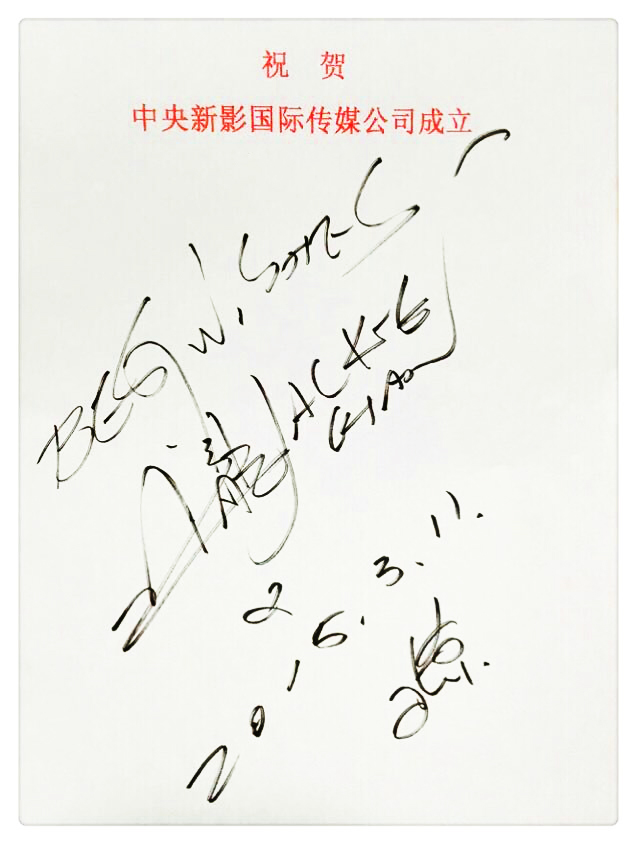 祝 贺
中央新影国际传媒公司成立
BEST WISHES
成龍 JACKIE
CHAN
2
2016.3.11.